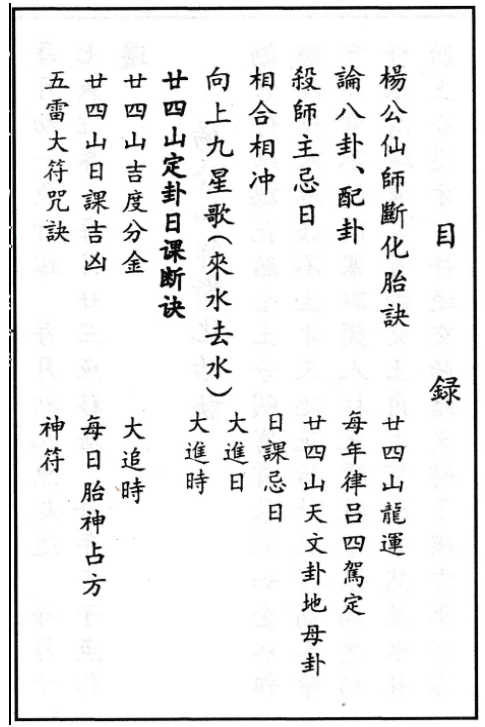 目録
楊公仙師斷化胎訣
廿四山龍運
論八卦、配卦
每年律吕四駕定
殺師主忌日
廿四山天文卦地母卦
相合相冲
日課忌日
向上九星歌(來水去水)
大進日
廿四山定卦日课断诀
大進時
廿四山吉度分金
大追時
廿四山日課吉凶
每日胎神占方
五雷大符咒訣
神符